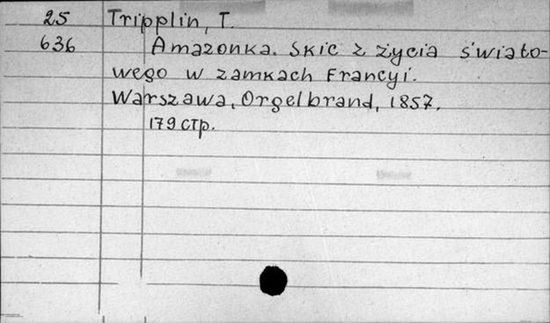 25 Tripplin, T.
636 Amazonka. Skic z życia świato-
wego w zamkach Francyi.
Warszawa, Orgelbrand, 1857.
179 стр.